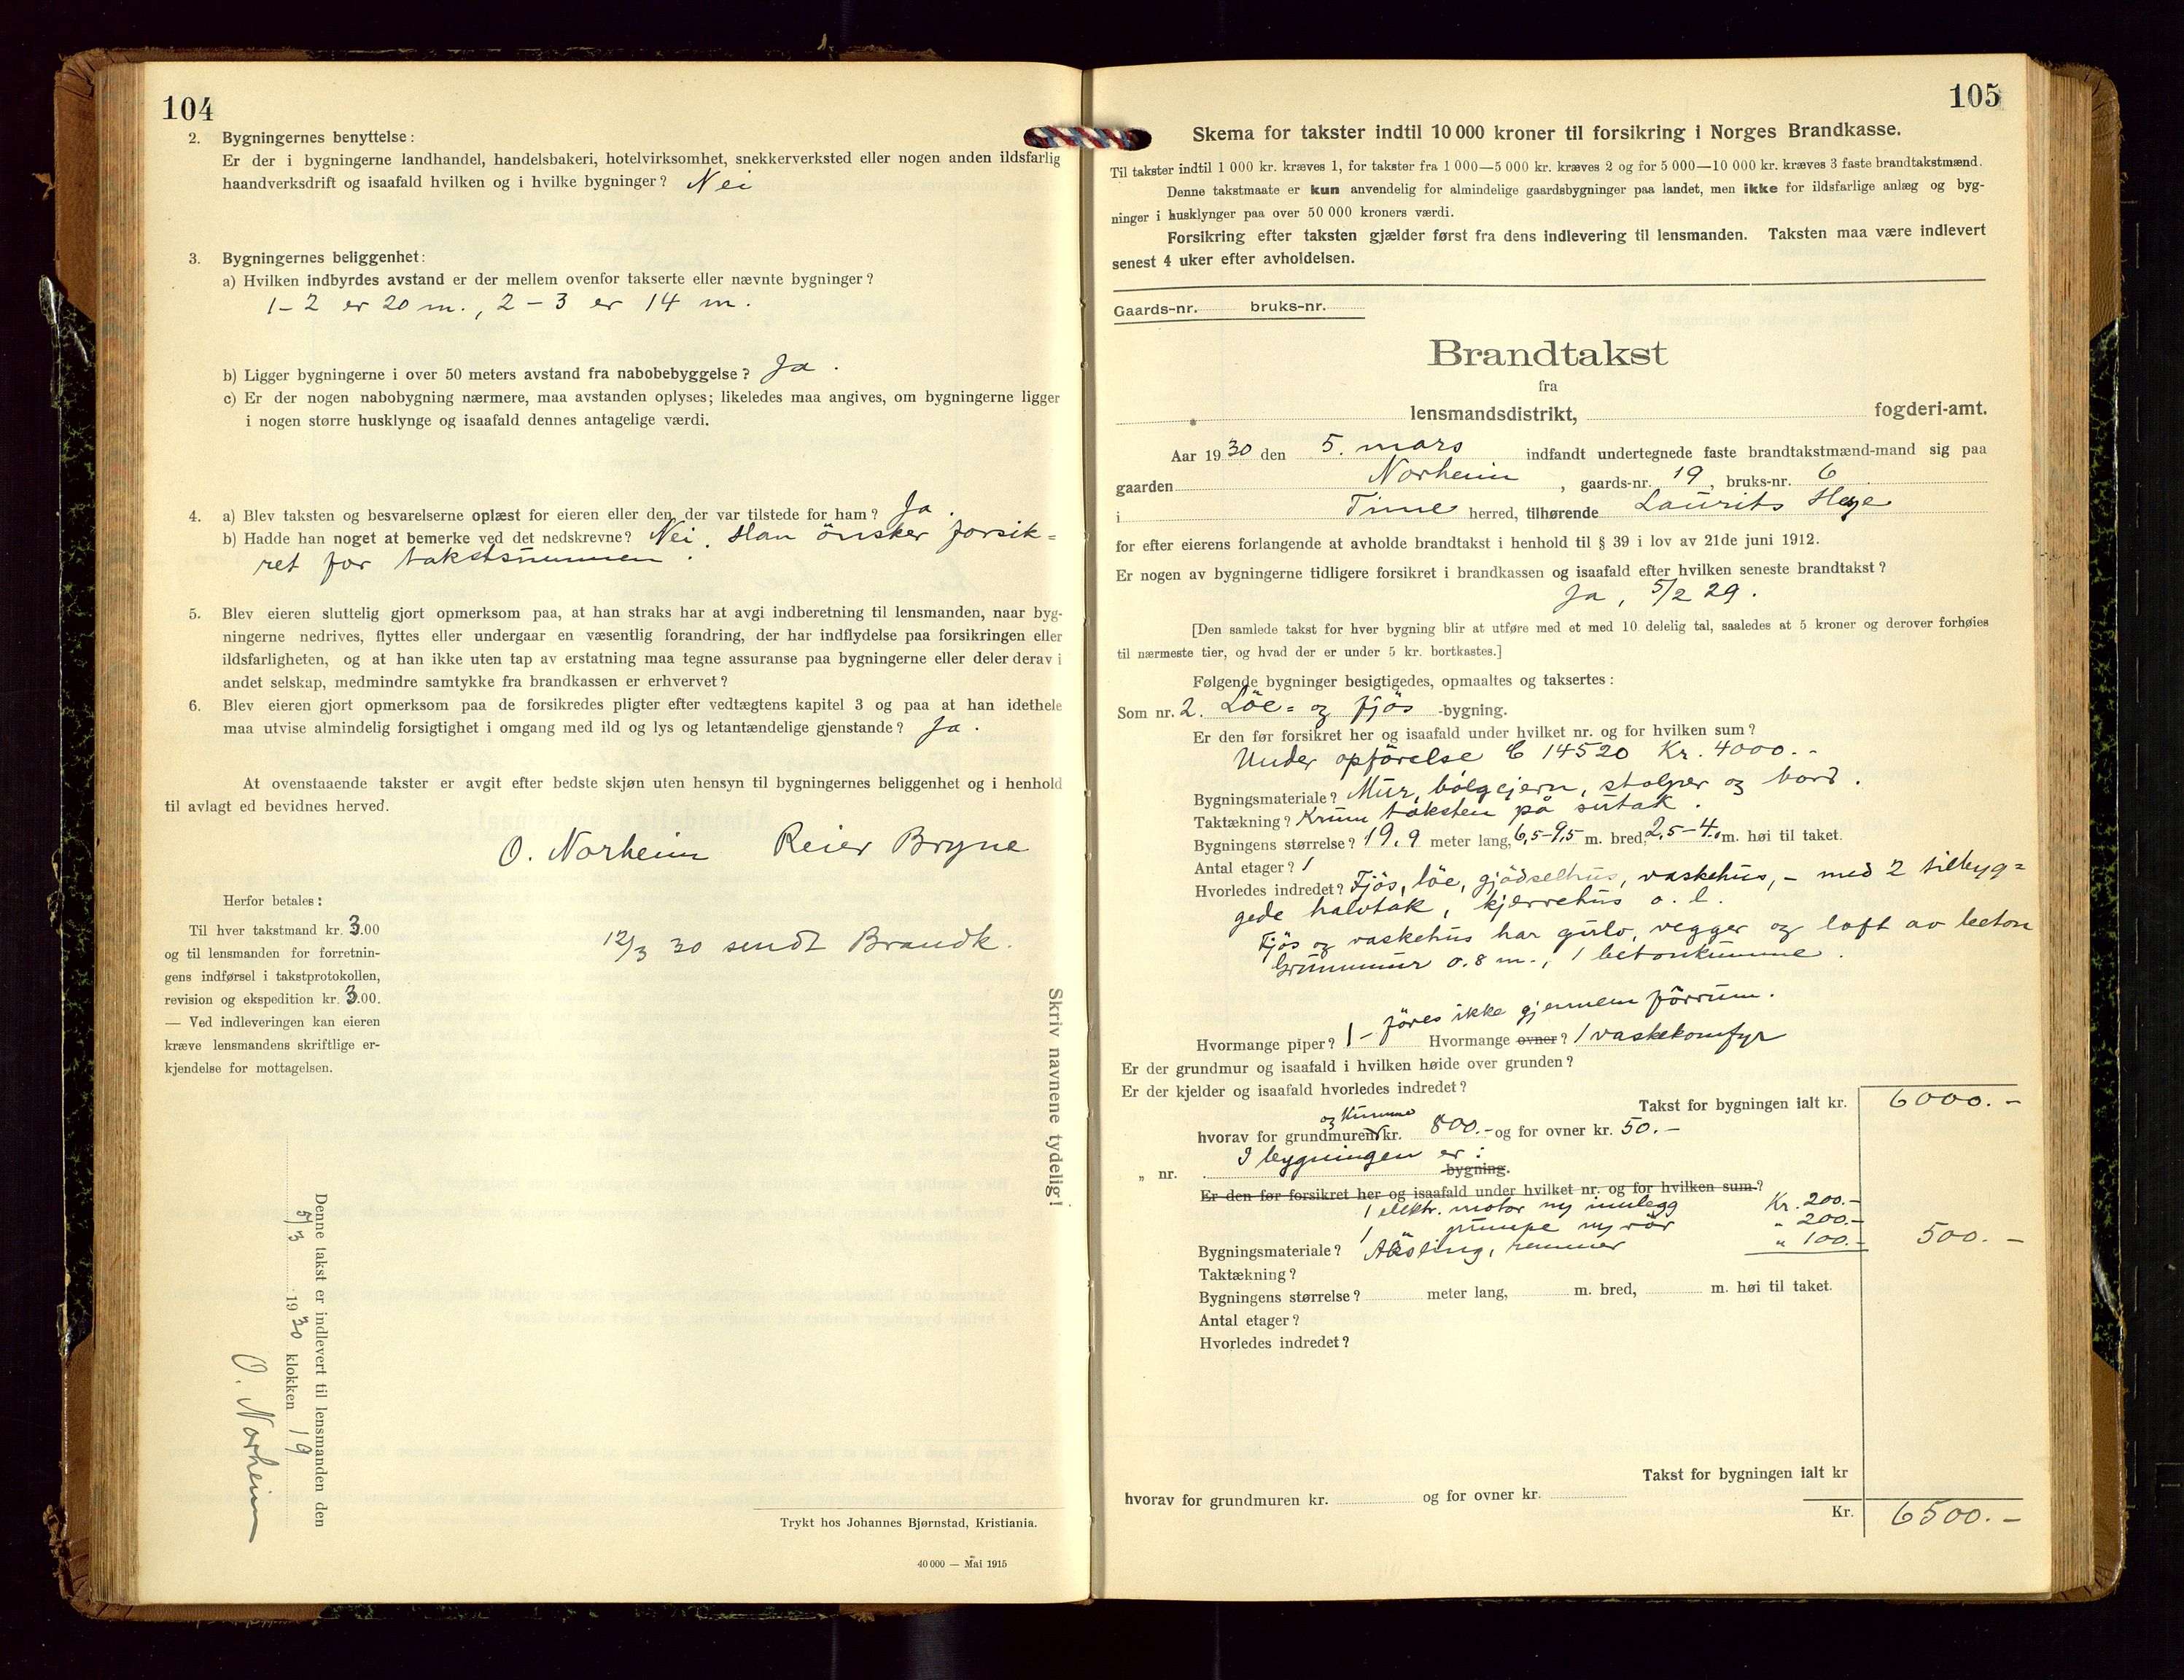 104
2. Bygningernes benyttelse:
Er der i bygningerne landhandel, handelsbakeri, hotelvirksomhet, snekkerverksted eller nogen anden ildsfarlig
haandverksdrift og isaafald hvilken og i hvilke bygninger? Nei
3. Bygningernes beliggenhet:
a) Hvilken indbyrdes avstand er der mellem ovenfor takserte eller nævnte bygninger?
1-2 er 20 m., 2-3 er 14 m.
b) Ligger bygningerne i over 50 meters avstand fra nabobebyggelse? Ja.
c) Er der nogen nabobygning nærmere, maa avstanden oplyses; likeledes maa angives, om bygningerne ligger
i nogen større husklynge og isaafald dennes antagelige værdi.
4. a) Blev taksten og besvarelserne oplæst for eieren eller den, der var tilstede for ham? Ja.
b) Hadde han noget at bemerke ved det nedskrevne? Nei. Han önsker forsik=
ret for takstsummen.
5. Blev eieren sluttelig gjort opmerksom paa, at han straks har at avgi indberetning til lensmanden, naar byg-
ningerne nedrives, flyttes eller undergaar en væsentlig forandring, der har indflydelse paa forsikringen eller
ildsfarligheten, og at han ikke uten tap av erstatning maa tegne assuranse paa bygningerne eller deler derav i
andet selskap, medmindre samtykke fra brandkassen er erhvervet?
6. Blev eieren gjort opmerksom paa de forsikredes pligter efter vedtægtens kapitel 3 og paa at han idethele
maa utvise almindelig forsigtighet i omgang med ild og lys og letantændelige gjenstande? Ja.
At ovenstaaende takster er avgit efter bedste skjøn uten hensyn til bygningernes beliggenhet og i henhold
til avlagt ed bevidnes herved.
O. Norheim Reier Bryne
Herfor betales:
Til hver takstmand kr. 3.00
og til lensmanden for forretnin-
gens indførsel i takstprotokollen,
revision og ekspedition kr. 3.00.
— Ved indleveringen kan eieren
kræve lensmandens skriftlige er-
kjendelse for mottagelsen.
12/3 30 sendt Brandk.
Skriv navnene tydelig!
Denne takst er indlevert til lensmanden den
5/3 1930 klokken 19
O. Norheim
Trykt hos Johannes Bjørnstad, Kristiania.
40 000 — Mai 1915
105
Skema for takster indtil 10 000 kroner til forsikring i Norges Brandkasse.
Til takster indtil 1 000 kr. kræves 1, for takster fra 1 000—5 000 kr. kræves 2 og for 5 000—10 000 kr. kræves 3 faste brandtakstmænd.
Denne takstmaate er kun anvendelig for almindelige gaardsbygninger paa landet, men ikke for ildsfarlige anlæg og byg-
ninger i husklynger paa over 50 000 kroners værdi.
Forsikring efter taksten gjælder først fra dens indlevering til lensmanden. Taksten maa være indlevert
senest 4 uker efter avholdelsen.
Gaards-nr. bruks-nr.
Brandtakst
fra
lensmandsdistrikt, fogderi-amt.
Aar 1930 den 5. mars indfandt undertegnede faste brandtakstmænd-mand sig paa
gaarden Norheim, gaards-nr. 19, bruks-nr. 6
i Time herred, tilhørende Laurits
for efter eierens forlangende at avholde brandtakst i henhold til § 39 i lov av 21de juni 1912.
Er nogen av bygningerne tidligere forsikret i brandkassen og isaafald efter hvilken seneste brandtakst?
Ja, 5/2 29.
[Den samlede takst for hver bygning blir at utføre med et med 10 delelig tal, saaledes at 5 kroner og derover forhøies
til nærmeste tier, og hvad der er under 5 kr. bortkastes.]
Følgende bygninger besigtigedes, opmaaltes og taksertes:
Som nr. 2. Löe= og fjös -bygning.
Er den før forsikret her og isaafald under hvilket nr. og for hvilken sum?
Under opförelse C 14520 Kr. 4000.-
Bygningsmateriale? Mur, bölgejern, stolper og bord.
Taktækning? Krum taksten på sutak.
Bygningens størrelse? 19.9 meter lang, 6,5-9,5 m. bred, 2,5-4.0 m. høi til taket.
Antal etager? 1
Hvorledes indredet? Fjös, löe, gjödselhus, vaskehus, - med 2 tilbyg=
gede halvtak, kjærrehus o. l.
Fjös og vaskehus har gulv, vegger og loft av beton
Grunnmur 0.8 m., 1 betonkumme.
Hvormange piper? 1 - föres ikke gjennem förrum. Hvormange ovner? 1 vaskekomfyr
Er der grundmur og isaafald i hvilken høide over grunden?
Er der kjelder og isaafald hvorledes indredet?
Takst for bygningen ialt kr. 6000.-
og kumme
hvorav for grundmuren kr. 800.- og for ovner kr. 50.-
„ nr. I bygningen er: bygning.
Er den før forsikret her og isaafald under hvilket nr. og for hvilken sum?
1 elektr. motor ny innlegg Kr. 200.-
1 " pumpe ny rör " 200.-
Bygningsmateriale? Aksling, remmer " 100.- 500.-
Taktækning?
Bygningens størrelse? meter lang, m. bred, m. høi til taket.
Antal etager?
Hvorledes indredet?
Takst for bygningen ialt kr
hvorav for grundmuren kr. og for ovner kr.
Kr. 6500.-